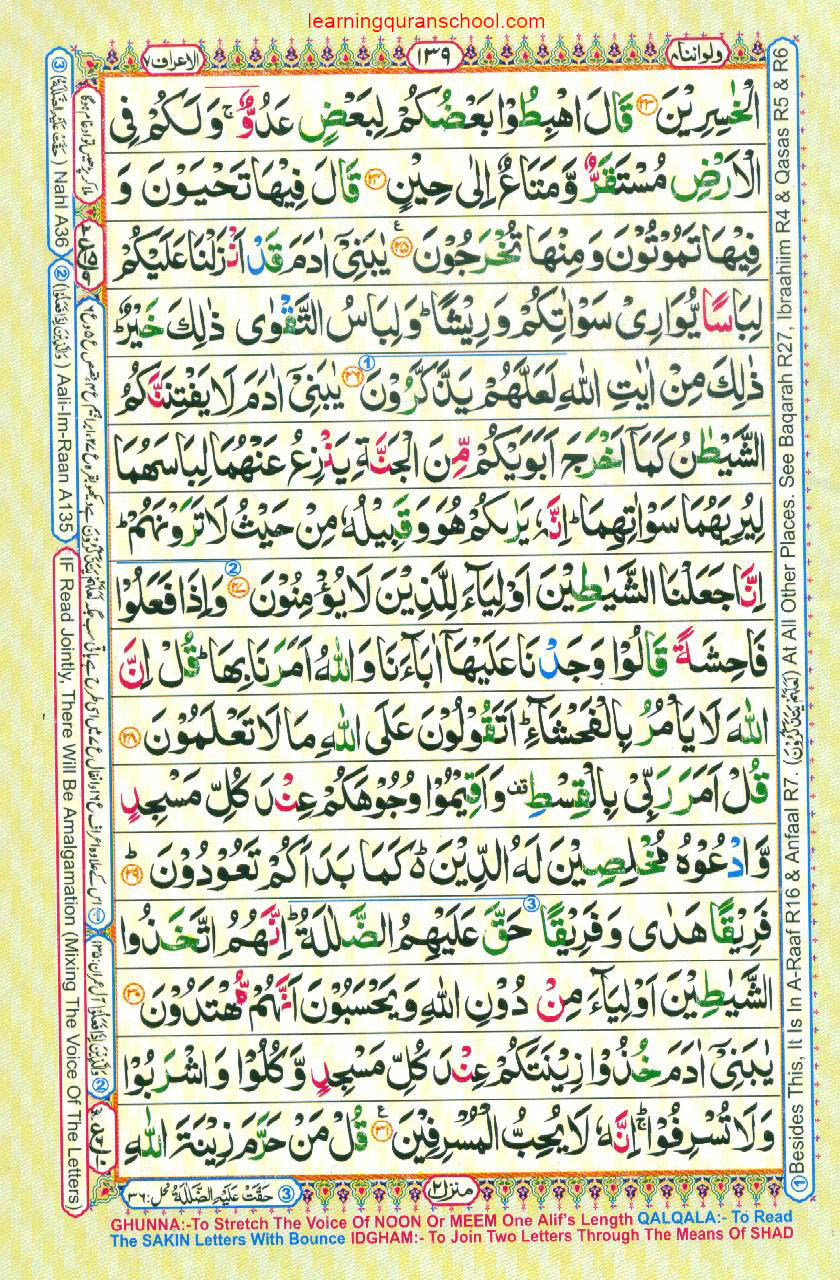 learningquranschool.com
ولواننا۸
۱۳۹
الاعراف۷
الْخٰسِرِيْنَ ﴿۲۳﴾ قَالَ اهْبِطُوْا بَعْضُكُمْ لِبَعْضٍ عَدُوٌّ ۚ وَلَكُمْ فِى
الْاَرْضِ مُسْتَقَرٌّ وَّمَتَاعٌ اِلٰى حِيْنٍ ﴿۲۴﴾ قَالَ فِيْهَا تَحْيَوْنَ وَ
فِيْهَا تَمُوْتُوْنَ وَمِنْهَا تُخْرَجُوْنَ ﴿۲۵﴾ يٰبَنِىْٓ اٰدَمَ قَدْ اَنْزَلْنَا عَلَيْكُمْ
لِبَاسًا يُّوَارِىْ سَوْاٰتِكُمْ وَرِيْشًا ؕ وَلِبَاسُ التَّقْوٰى ذٰلِكَ خَيْرٌ ؕ
ذٰلِكَ مِنْ اٰيٰتِ اللّٰهِ لَعَلَّهُمْ يَذَّكَّرُوْنَ ﴿۲۶﴾ يٰبَنِىْٓ اٰدَمَ لَا يَفْتِنَنَّكُمُ
الشَّيْطٰنُ كَمَآ اَخْرَجَ اَبَوَيْكُمْ مِّنَ الْجَنَّةِ يَنْزِعُ عَنْهُمَا لِبَاسَهُمَا
لِيُرِيَهُمَا سَوْاٰتِهِمَا ؕ اِنَّهٗ يَرٰىكُمْ هُوَ وَقَبِيْلُهٗ مِنْ حَيْثُ لَا تَرَوْنَهُمْ ؕ
اِنَّا جَعَلْنَا الشَّيٰطِيْنَ اَوْلِيَآءَ لِلَّذِيْنَ لَا يُؤْمِنُوْنَ ﴿۲۷﴾ وَاِذَا فَعَلُوْا
فَاحِشَةً قَالُوْا وَجَدْنَا عَلَيْهَآ اٰبَآءَنَا وَاللّٰهُ اَمَرَنَا بِهَا ؕ قُلْ اِنَّ
اللّٰهَ لَا يَاْمُرُ بِالْفَحْشَآءِ ؕ اَتَقُوْلُوْنَ عَلَى اللّٰهِ مَا لَا تَعْلَمُوْنَ ﴿۲۸﴾
قُلْ اَمَرَ رَبِّىْ بِالْقِسْطِ ۟ وَاَقِيْمُوْا وُجُوْهَكُمْ عِنْدَ كُلِّ مَسْجِدٍ
وَّادْعُوْهُ مُخْلِصِيْنَ لَهُ الدِّيْنَ ؕ كَمَا بَدَاَكُمْ تَعُوْدُوْنَ ﴿۲۹﴾
فَرِيْقًا هَدٰى وَفَرِيْقًا حَقَّ عَلَيْهِمُ الضَّلٰلَةُ ؕ اِنَّهُمُ اتَّخَذُوا
الشَّيٰطِيْنَ اَوْلِيَآءَ مِنْ دُوْنِ اللّٰهِ وَيَحْسَبُوْنَ اَنَّهُمْ مُّهْتَدُوْنَ ﴿۳۰﴾
يٰبَنِىْٓ اٰدَمَ خُذُوْا زِيْنَتَكُمْ عِنْدَ كُلِّ مَسْجِدٍ وَّكُلُوْا وَاشْرَبُوْا
وَلَا تُسْرِفُوْا ۚ اِنَّهٗ لَا يُحِبُّ الْمُسْرِفِيْنَ ﴿۳۱﴾ قُلْ مَنْ حَرَّمَ زِيْنَةَ اللّٰهِ
① Besides This, It Is In A-Raaf R16 & Anfaal R7. (لَعَلَّهُمْ يَتَذَكَّرُوْنَ) At All Other Places. See Baqarah R27, Ibraahiim R4 & Qasas R5 & R6
③ (حَقَّتْ عَلَيْهِ الضَّلٰلَةُ) Nahl A36
② (وَالَّذِيْنَ اِذَا فَعَلُوْا) Aali-Im-Raan A135
IF Read Jointly, There Will Be Amalgamation (Mixing The Voice Of The Letters)
③ حَقَّتْ عَلَيْهِ الضَّلٰلَةُ نحل:۳۶
منزل۲
GHUNNA:-To Stretch The Voice Of NOON Or MEEM One Alif's Length QALQALA:- To Read
The SAKIN Letters With Bounce IDGHAM:- To Join Two Letters Through The Means Of SHAD